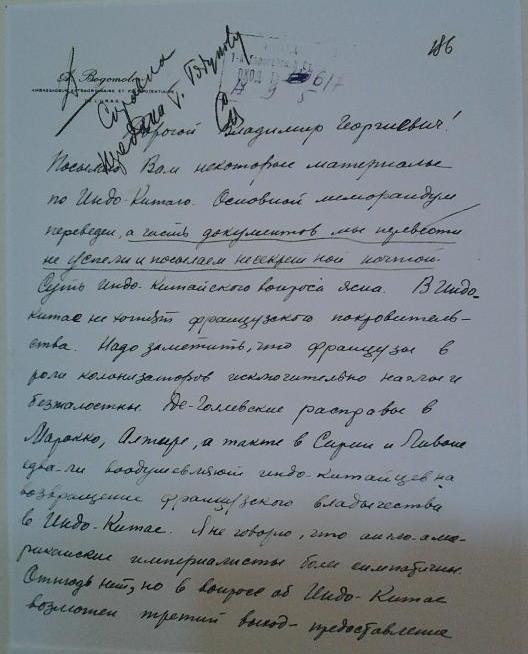 186
A. Bogomolov
AMBASSADEUR EXTRAORDINAIRE ET PLENIPOTENTIAIRE
Дорогой Владимир Георгиевич!
Посылаю Вам некоторые материалы
по Индо-Китаю. Основной меморандум
переведен, а часть документов мы перевести
не успели и посылаем несекретной почтой.
Суть Индо-Китайского вопроса ясна. В Индо-
Китае не хотят французского покровитель-
ства. Надо заметить, что французы в
роли колонизаторов исключительно наглы и
безжалостны. Де-Голлевские расправы в
Марокко, Алжире, а также в Сирии и Ливане
едва-ли воодушевляют индо-китайцев на
возвращение французского владычества
в Индо-Китае. Я не говорю, что англо-аме-
риканские империалисты более симпатичны.
Отнюдь нет, но в вопросе об Индо-Китае
возможен третий выход - предоставление